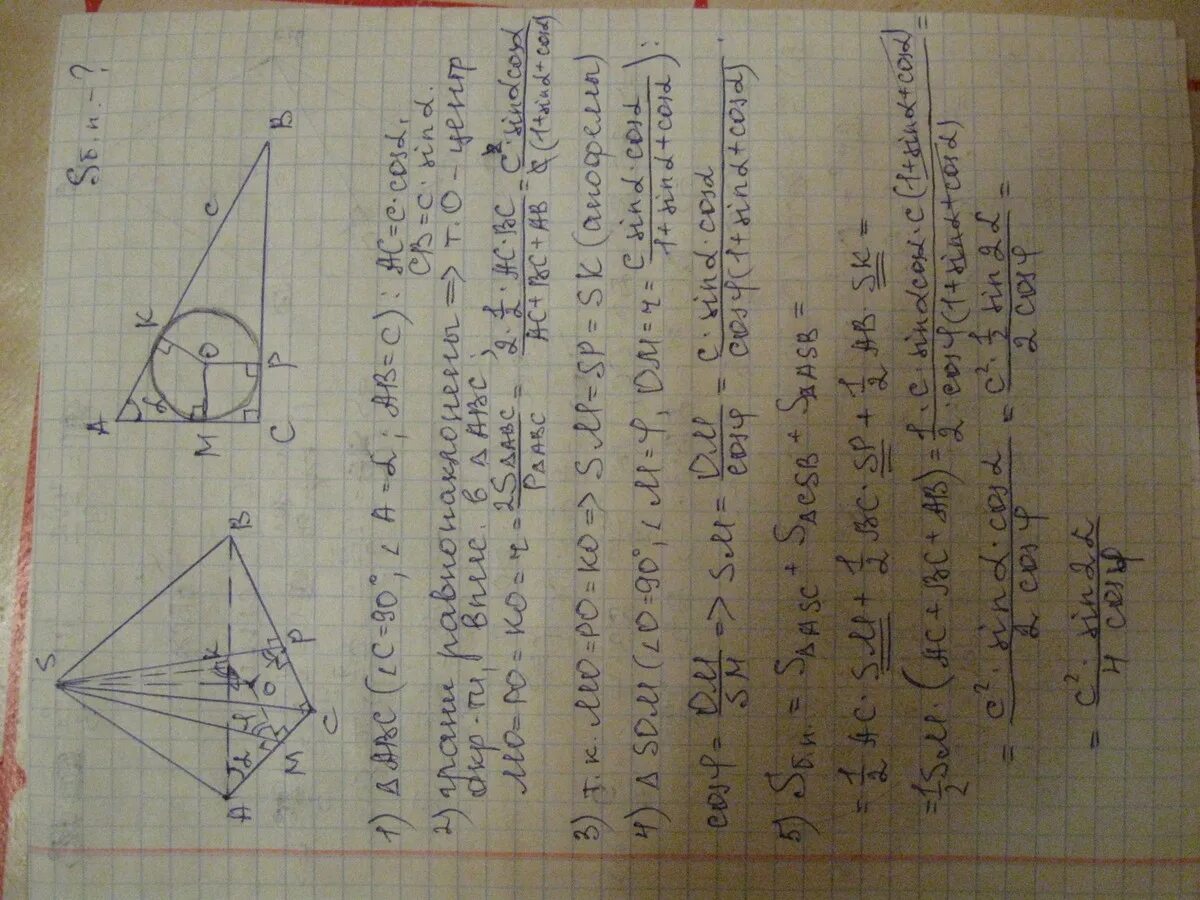 Sб.п. - ?
S
A
B
C
M
K
P
O
α
φ
A
α
K
c
B
M
O
C
P
1) ΔABC (∠C=90°, ∠A=α; AB=c): AC=c·cosα,
CB=c·sinα.
2) грани равнонаклонены => т. O - центр
окр-ти, впис. в ΔABC;
MO=PO=KO=r= 2SΔABC / PΔABC = 2·1/2·AC·BC / AC+BC+AB = c²·sinαcosα / c(1+sinα+cosα)
3) т.к. MO=PO=KO=> SM=SP=SK (апофемы)
4) ΔSOM (∠O=90°, ∠M=φ, OM=r= c sinα·cosα / 1+sinα+cosα):
cosφ= OM / SM => SM= OM / cosφ = c·sinα·cosα / cosφ(1+sinα+cosα).
5) Sб.п. = SΔASC + SΔCSB + SΔASB =
= 1/2 AC·SM + 1/2 BC·SP + 1/2 AB·SK =
= 1/2 SM·(AC+BC+AB)= 1·c·sinαcosα·c(1+sinα+cosα) / 2·cosφ(1+sinα+cosα) =
= c²·sinα·cosα / 2 cosφ = c²·1/2 sin2α / 2 cosφ =
= c²·sin2α / 4 cosφ